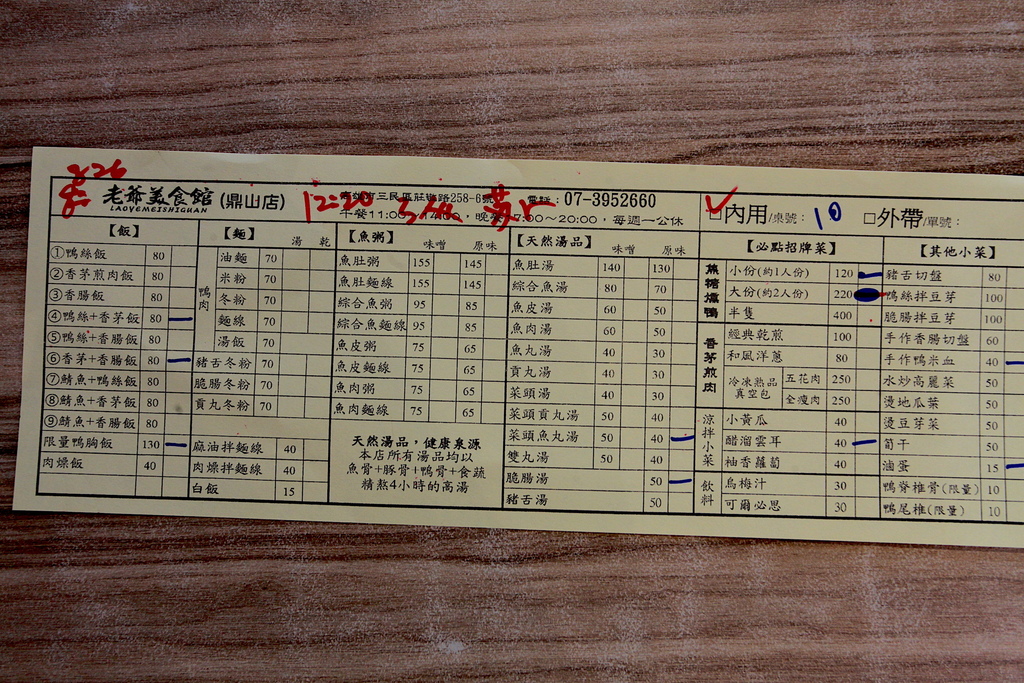 226
老爺美食館 (鼎山店)
LAOYEMEISHIGUAN
12:20 3位
電話:07-3952660
~20:00,每週一公休
內用/桌號: 10 外帶/單號:
【飯】
①鴨絲飯 80
②香茅煎肉飯 80
③香腸飯 80
④鴨絲+香茅飯 80
⑤鴨絲+香腸飯 80
⑥香茅+香腸飯 80
⑦鯖魚+鴨絲飯 80
⑧鯖魚+香茅飯 80
⑨鯖魚+香腸飯 80
限量鴨胸飯 130
肉燥飯 40
【麵】 湯 乾
鴨肉
油麵 70
米粉 70
冬粉 70
麵線 70
湯飯 70
豬舌冬粉 70
脆腸冬粉 70
貢丸冬粉 70
麻油拌麵線 40
肉燥拌麵線 40
白飯 15
【魚粥】 味噌 原味
魚肚粥 155 145
魚肚麵線 155 145
綜合魚粥 95 85
綜合魚麵線 95 85
魚皮粥 75 65
魚皮麵線 75 65
魚肉粥 75 65
魚肉麵線 75 65
天然湯品,健康泉源
本店所有湯品均以
魚骨+豚骨+鴨骨+食蔬
精熬4小時的高湯
【天然湯品】 味噌 原味
魚肚湯 140 130
綜合魚湯 80 70
魚皮湯 60 50
魚肉湯 60 50
魚丸湯 40 30
貢丸湯 40 30
菜頭湯 40 30
菜頭貢丸湯 50 40
菜頭魚丸湯 50 40
雙丸湯 50 40
脆腸湯 50
豬舌湯 50
【必點招牌菜】
焦糖燻鴨
小份(約1人份) 120
大份(約2人份) 220
半隻 400
香茅煎肉
經典乾煎 100
和風洋蔥 80
冷凍熟品真空包
五花肉 250
全瘦肉 250
涼拌小菜
小黃瓜 40
醋溜雲耳 40
柚香蘿蔔 40
飲料
烏梅汁 30
可爾必思 30
【其他小菜】
豬舌切盤 80
鴨絲拌豆芽 100
脆腸拌豆芽 100
手作香腸切盤 60
手作鴨米血 40
水炒高麗菜 50
燙地瓜葉 50
燙豆芽菜 50
筍干 50
滷蛋 15
鴨脊椎骨(限量) 10
鴨尾椎(限量) 10